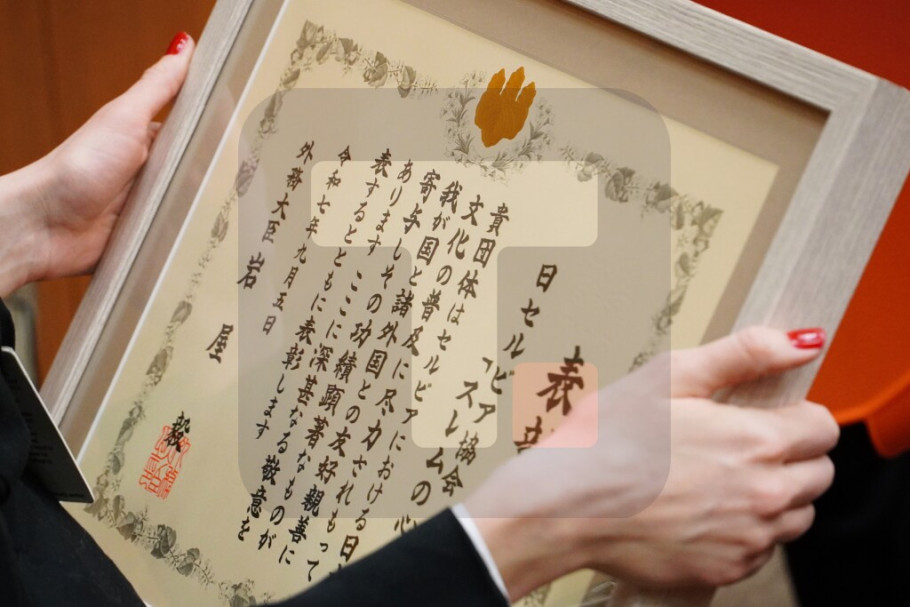 表
日セルビア協会
「スレムの心
貴団体はセルビアにおける日
文化の普及に尽力されもって
我が国と諸外国との友好親善に
寄与しその功績顕著なものが
あります ここに深甚なる敬意を
表するとともに表彰します
令和七年九月五日
外務大臣 岩屋 毅